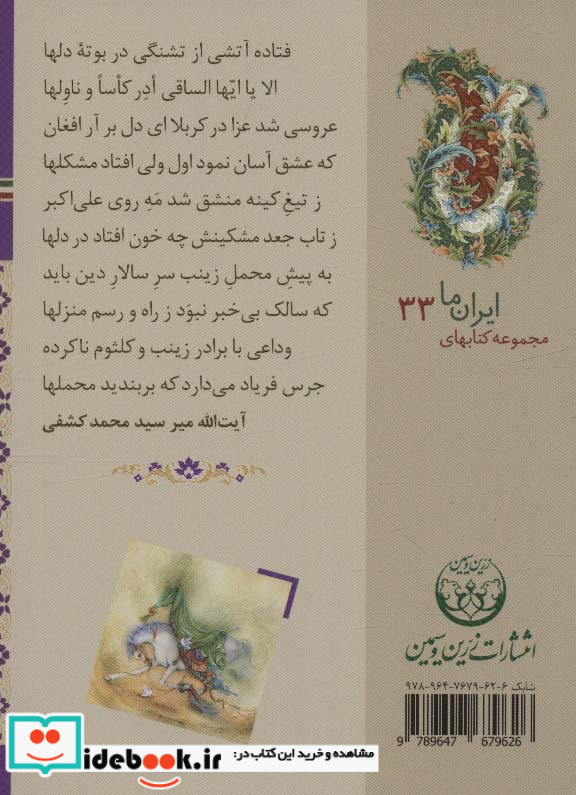 فتاده آتشی از تشنگی در بوتهٔ دلها
الا یا ایّها الساقی أدِر کأساً و ناوِلها
عروسی شد عزا در کربلا ای دل بر آر افغان
که عشق آسان نمود اول ولی افتاد مشکلها
ز تیغِ کینه منشق شد مَهِ روی علی‌اکبر
ز تاب جعد مشکینش چه خون افتاد در دلها
به پیشِ محملِ زینب سرِ سالارِ دین باید
که سالک بی‌خبر نبوَد ز راه و رسم منزلها
وداعی با برادر زینب و کلثوم ناکرده
جرس فریاد می‌دارد که بربندید محملها
آیت‌الله میر سید محمد کشفی
ایران ما ۳۳
مجموعه کتابهای
زرّین و سیمین
انتشارات زرّین و سیمین
شابک ۶-۶۲-۷۶۷۹-۹۶۴-۹۷۸
9 789647 679626
idebook.ir
مشاهده و خرید این کتاب در: